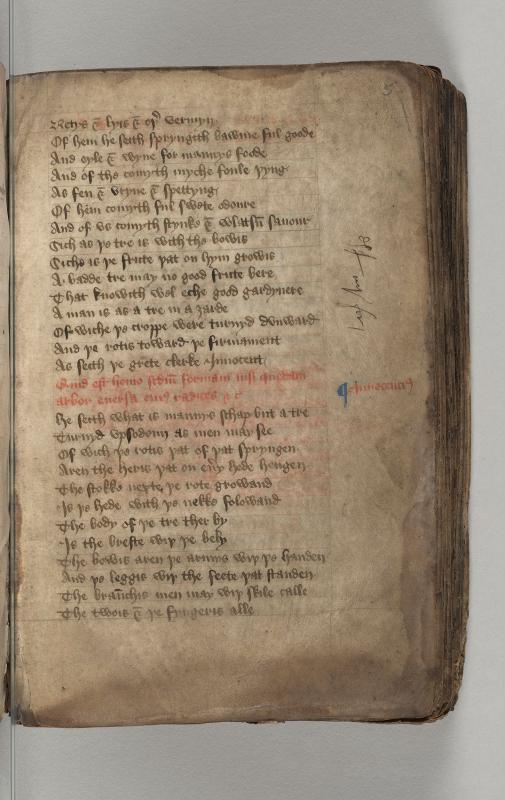 Netys & lyis & oþer vermyn
Of hem he seith spryngith bawme ful goode
And oyle & wyne for mannys foode
And of the comyth myche foule þyng
As fen & vryne & spettyng
Of hem comyth ful swete odoure
And of vs comyth stynke & wlatsū sauour
Sich as þe tre is with the bowis
Siche is þe frute þat on hym growis
A badde tre may no good frute bere
That knowith wel eche good gardynere
A man is as a tre in a zarde
Of wiche þe croppe were turnyd dunward
And þe rotis toward þe firmament
As seith þe grete clerke Innocent
Quid est homo scdm formam nisi quedam
arbor euersa cuius radices & c
He seith what is mannys schap but a tre
Turnyd vpsodoun as men may see
Of wich þe rotis þat of þat spryngen
Aren the heris þat on euery hede hengen
The stokke nexte þe rote growand
Is þe hede with þe nekke folowand
The body of þe tre ther by
Is the breste wiþ þe bely
The bowis aren þe armys wiþ þe handen
And þe leggis wiþ the feete þat standen
The braūchis men may wiþ skile calle
The twois & þe fyngeris alle
¶ Innocencius